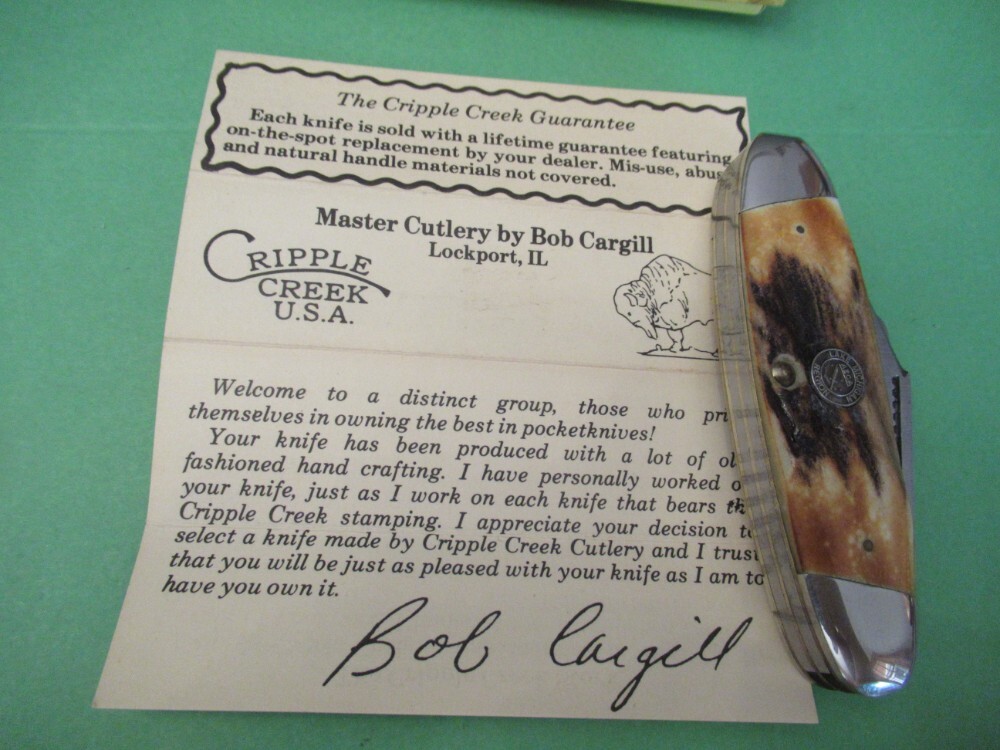 The Cripple Creek Guarantee
Each knife is sold with a lifetime guarantee featuring
on-the-spot replacement by your dealer. Mis-use, abus
and natural handle materials not covered.
Master Cutlery by Bob Cargill
Lockport, IL
CRIPPLE
CREEK
U.S.A.
Welcome to a distinct group, those who pri
themselves in owning the best in pocketknives!
Your knife has been produced with a lot of ol
fashioned hand crafting. I have personally worked o
your knife, just as I work on each knife that bears th
Cripple Creek stamping. I appreciate your decision t
select a knife made by Cripple Creek Cutlery and I trust
that you will be just as pleased with your knife as I am to
have you own it.
Bob Cargill